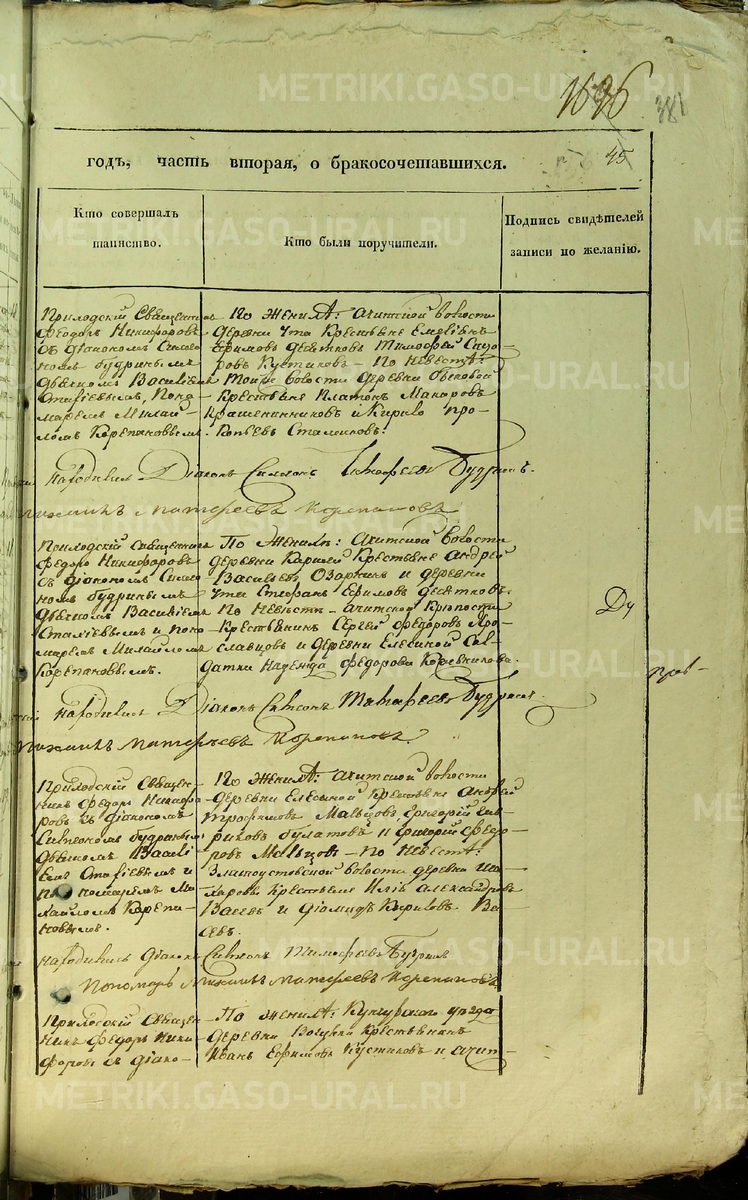 METRIKI.GASO-URAL.RU
381
45
годъ, часть вторая, о бракосочетавшихся.
Кто совершалъ таинство.
Кто были поручители.
Подпись свидѣтелей записи по желанію.
Приходскій Священникъ
Федоръ Никифоровъ
съ діакономъ Симео
номъ Будринымъ
дьячкомъ Василіемъ
поно
маремъ Михай
ломъ Корепановымъ.
По женихѣ: Ачитской волости
деревни Крестьяне
Ефимовъ Десятковъ Тимофей Сидо
ровъ Кустиковъ – по невестѣ:
Тойже волости деревни Быковой
Крестьяне Платонъ Макаровъ
Крашенинниковъ и Кирило Про-
копьевъ
находился Діаконъ Симеонъ Тимофеевъ Будринъ.
Михаилъ Матфеевъ Корепановъ
Приходскій священникъ
Федоръ Никифоровъ
съ діакономъ Симео
номъ Будринымъ
дьячкомъ Василіемъ
и поно
маремъ Михайломъ
Корепановымъ.
По женихѣ: Ачитской волости
деревни Крестьяне Андрей
Васильевъ и деревни
Ефимовъ Десятковъ.
По невестѣ – Ачитской Крѣпости
Крестьянинъ Сергей Федоровъ Яро-
славцовъ и деревни Елесиной Сол
датка Надежда Федорова
Ду
находился Діаконъ Симеонъ Тимофеевъ Будринъ
Михаилъ Матфеевъ Корепановъ.
Приходскій Священ-
никъ Федоръ Никифо
ровъ съ діакономъ
Симеономъ Будринымъ
дьячкомъ Васили
емъ и
пономаремъ Ми
хайломъ Корепа-
новымъ.
По женихѣ: Ачитской волости
деревни Елесиной Крестьяне Андрей
Трофимовъ Мальцовъ Григорий
Булатовъ и Григорий Федо-
ровъ Мальцовъ – по невестѣ:
Златоустовской волости деревни
Крестьяне Илія Александровъ
Васевъ и Діамидъ Кириловъ Ва
севъ.
находился діаконъ Симеонъ Тимофеевъ Будринъ
Пономарь Михаилъ Матфеевъ Корепановъ
Приходский Священ
никъ Федоръ Ники
форовъ съ діако-
По женихѣ: Кунгурскаго уѣзда
деревни Крестьянинъ
Иванъ Ефимовъ Кустиковъ и Ачит-